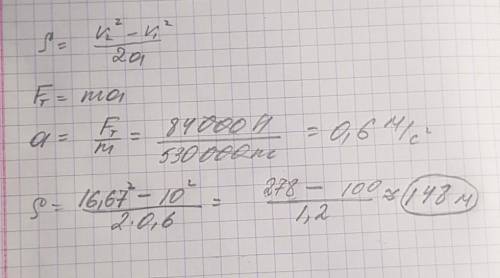 S = (v₂² - v₁²) / 2a
Fт = ma
a = Fт / m = 84000 Н / 530000 кг = 0,6 м/с²
S = (16,67² - 10²) / 2·0,6 = (278 - 100) / 1,2 ≈ 148 м